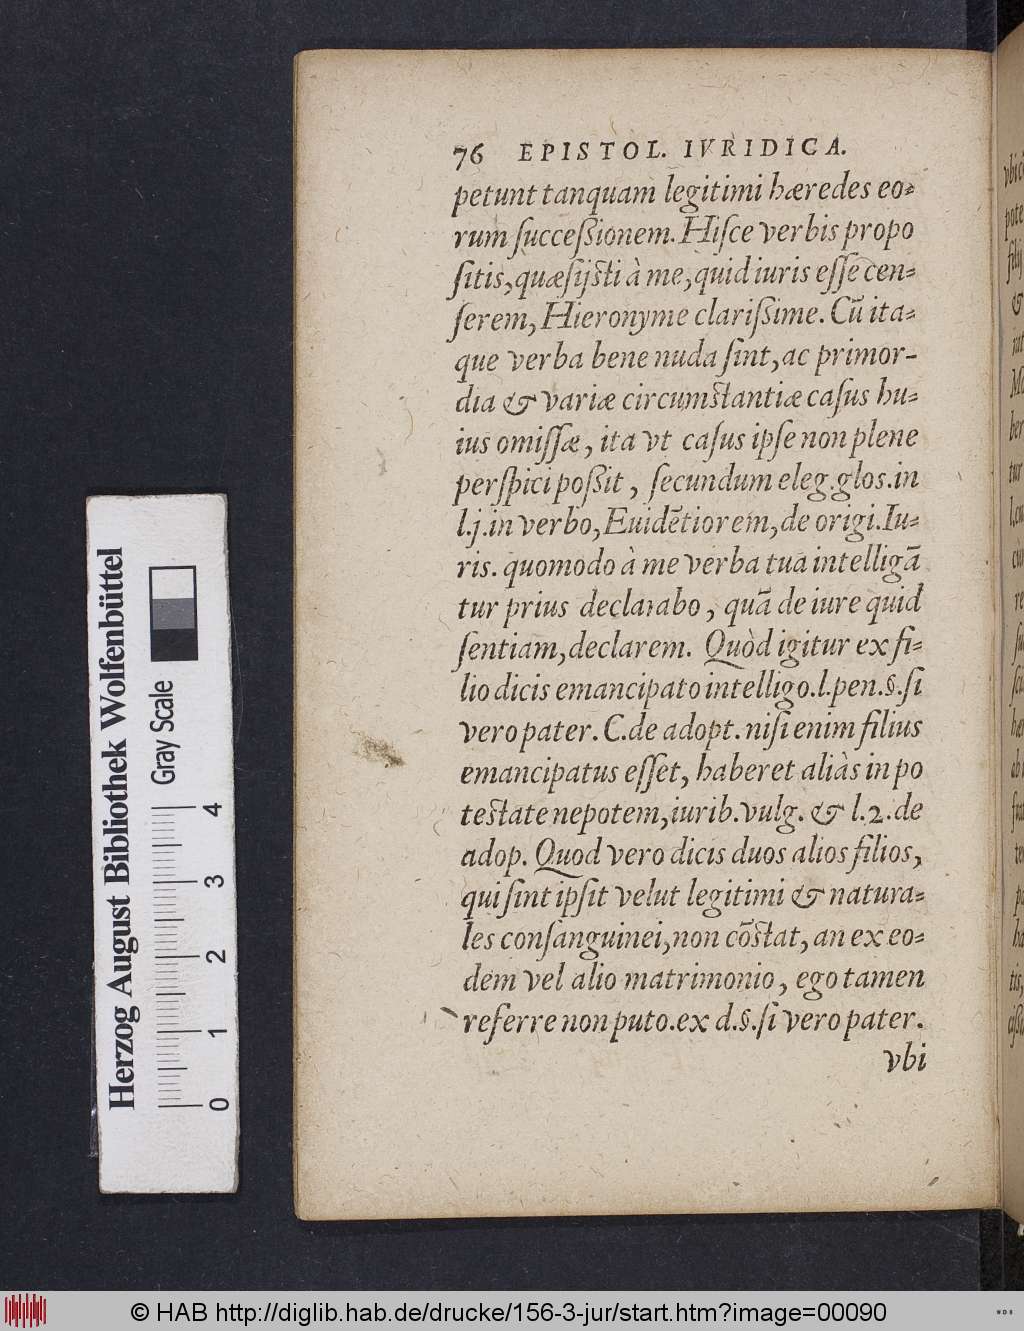 76 EPISTOL. IVRIDICA.
petunt tanquam legitimi hæredes eo-
rum ſucceßionem. Hiſce verbis propo
ſitis, quæſijſti à me, quid iuris eſſe cen-
ſerem, Hieronyme clarißime. Cū ita-
que verba bene nuda ſint, ac primor-
dia & variæ circumſtantiæ caſus hu-
ius omiſſæ, ita vt caſus ipſe non plene
perſpici poßit, ſecundum eleg. glos. in
l.j. in verbo, Euidētiorem, de origi. Iu-
ris. quomodo à me verba tua intelligā
tur prius declarabo, quā de iure quid
ſentiam, declarem. Quòd igitur ex fi-
lio dicis emancipato intelligo. l. pen. §. ſi
vero pater. C. de adopt. niſi enim filius
emancipatus eſſet, haberet aliàs in po
teſtate nepotem, iurib. vulg. & l. 2. de
adop. Quod vero dicis duos alios filios,
qui ſint ipſit velut legitimi & natura-
les conſanguinei, non cōſtat, an ex eo-
dem vel alio matrimonio, ego tamen
referre non puto. ex d. §. ſi vero pater.
vbi
Herzog August Bibliothek Wolfenbüttel
Gray Scale
0 1 2 3 4
© HAB http://diglib.hab.de/drucke/156-3-jur/start.htm?image=00090